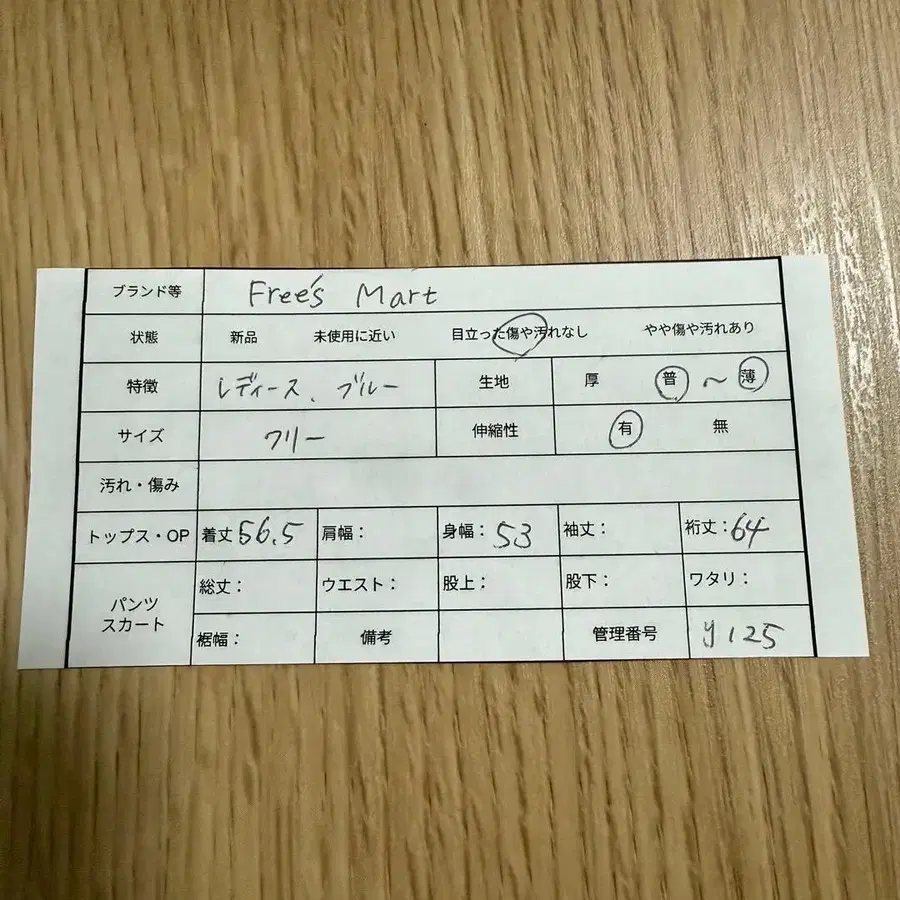 ブランド等 Free's Mart
状態 新品 未使用に近い 目立った傷や汚れなし やや傷や汚れあり
特徴 レディース、ブルー 生地 厚 普 〜 薄
サイズ フリー 伸縮性 有 無
汚れ・傷み
トップス・OP 着丈 56.5 肩幅： 身幅： 53 袖丈： 裄丈： 64
パンツ スカート 総丈： ウエスト： 股上： 股下： ワタリ：
裾幅： 備考 管理番号 y125